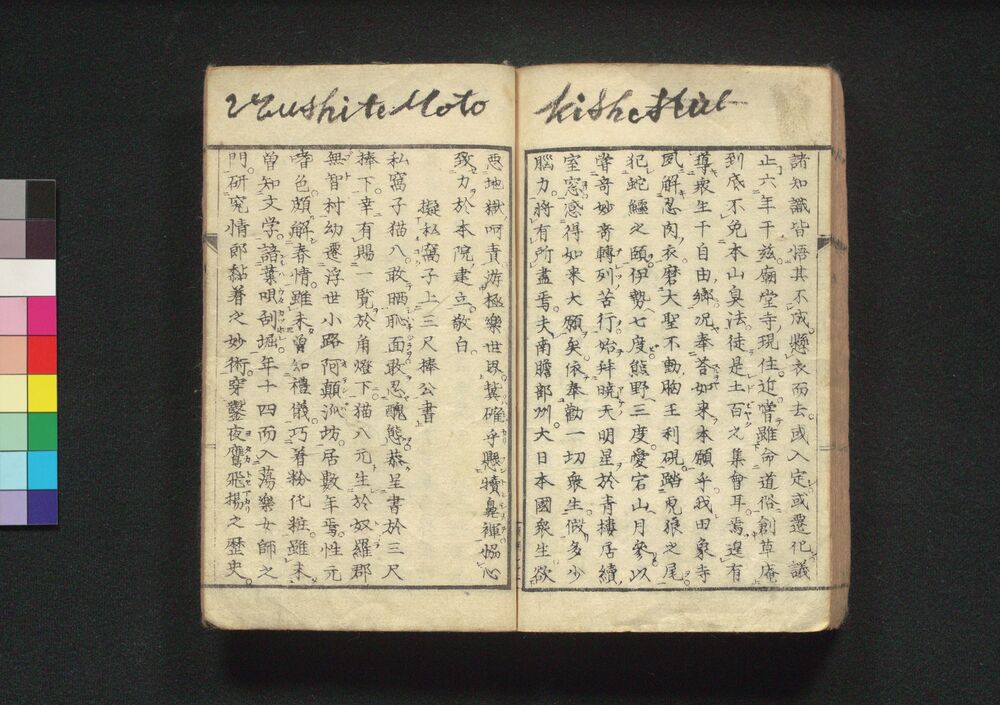 kishe
YZushite Moto
諸知識皆悟其不成懸衣而去或入定或遷化議
止六年干茲廟堂寺現住近嘗雖命道俗創草庵
到底不免本山臭法徒是土百之集會耳焉遑有
尊衆生十自由鄉况奉荅如來本願乎我田象寺
夙解忍肉衣磨大聖不動胸王利硯踏虎狼之尾
犯蛇鱷之頤伊勢七度熊野三度愛宕山月參以
嘗奇妙奇轉列苦行始拜曉天明星於青樓居續
室窓感得如來大願矣依奉勸一切衆生假多少
腦力將有所盡焉夫南贍部州大日本國衆生欲
惡地獄呵責游極樂世界冀確乎懸犢鼻褌協心
致力於本院建立敬白
擬私窩子上三尺捧公書
私窩子猫八敢晒耻面敢忍醜態恭呈書於三尺
捧下幸有賜一覧於角燈下猫八元生於奴羅郡
無智村幼遷浮世小路阿顛派坊居數年焉性元
嗜色頗解春情雖未曾知禮儀巧着粉化粧雖未
曽知文学諳葉唄刮堀年十四而入蕩樂女師之
門研究情郎黏着之妙術穿鑿夜鷹飛揚之歴史